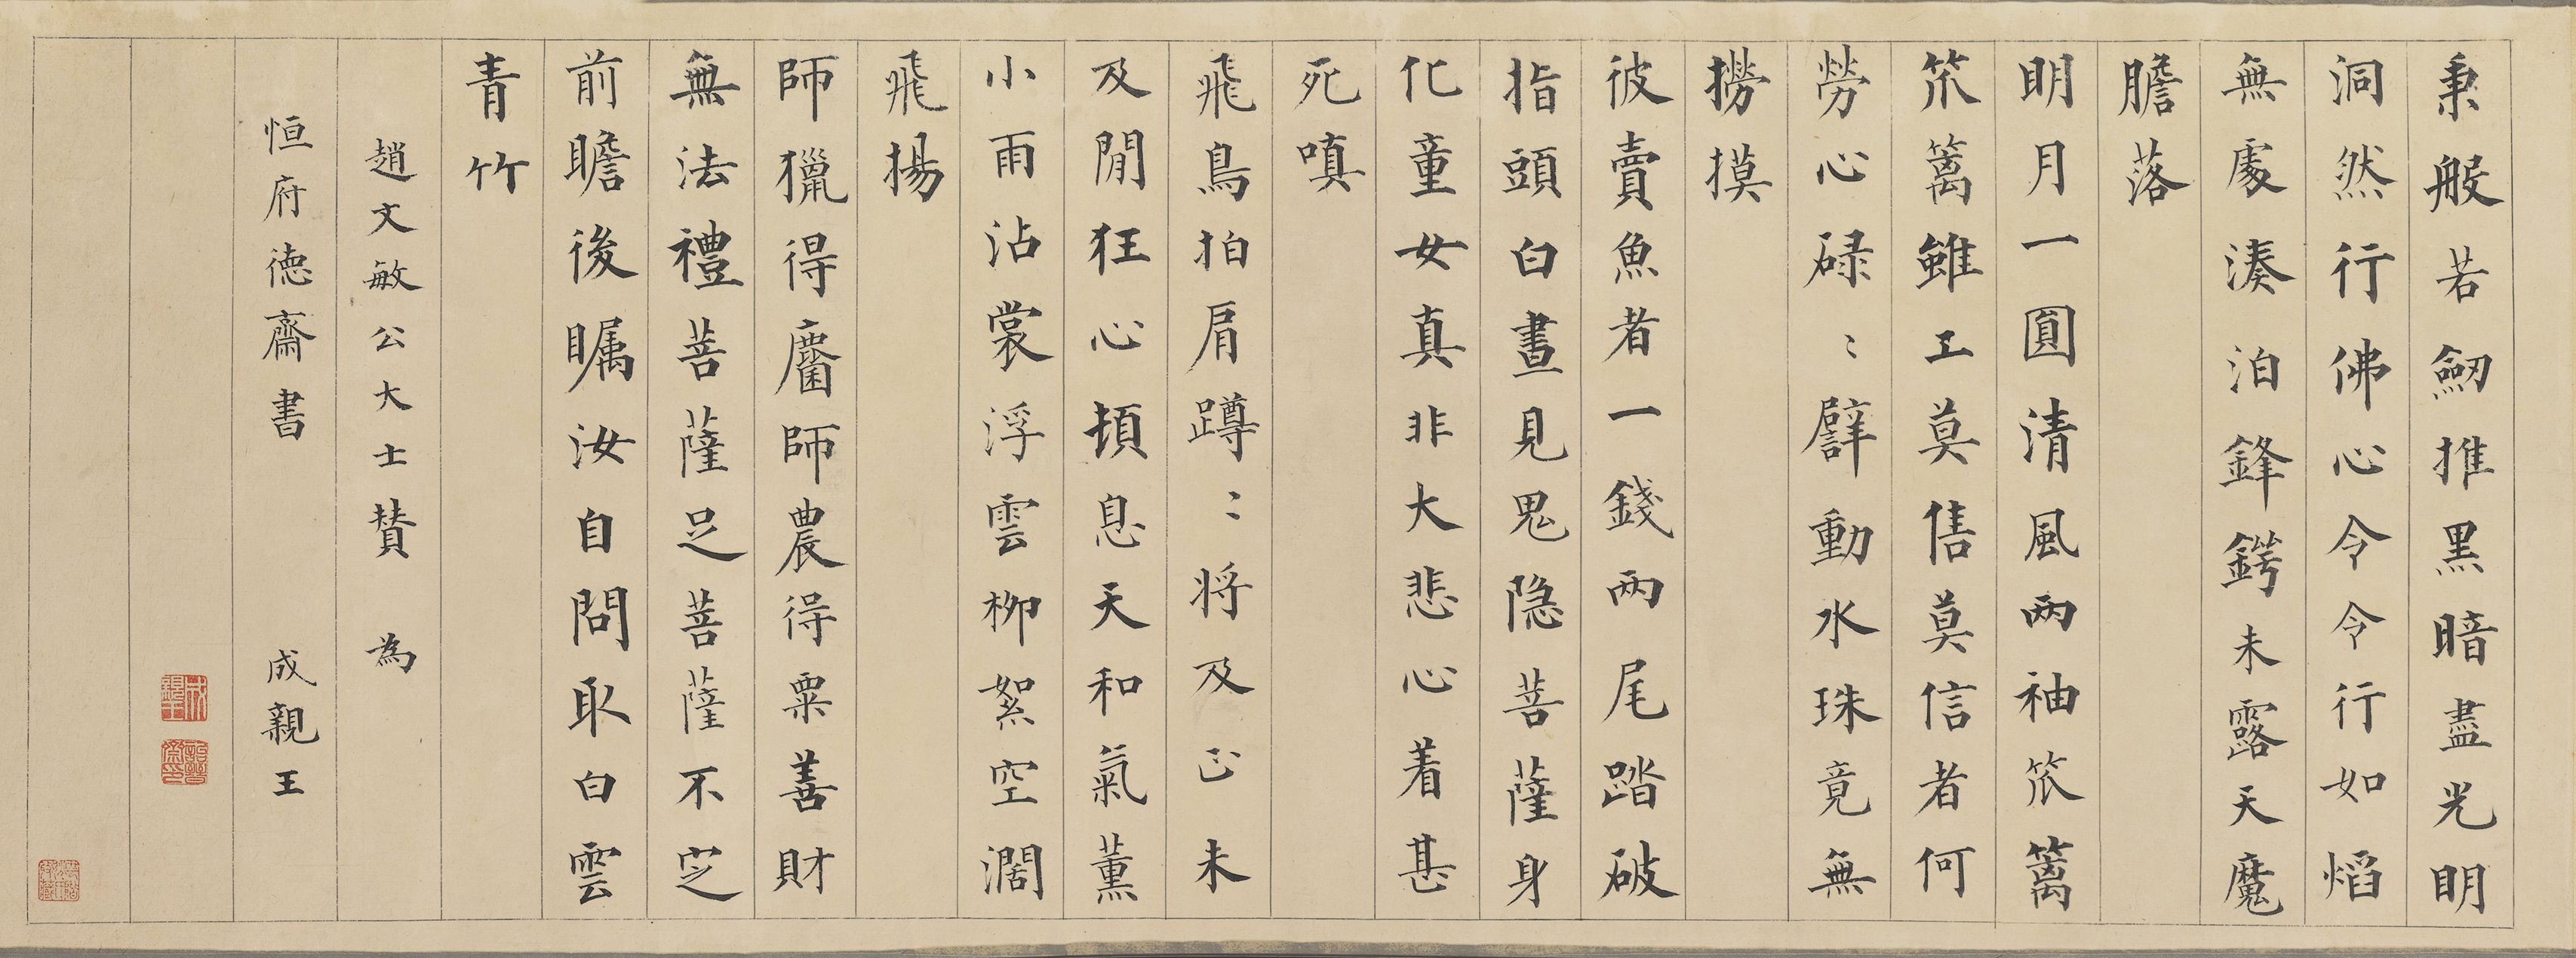 秉般若劒推黒暗盡光明
洞然行佛心令令行如熖
無處湊泊鋒鍔未露天魔
膽落
明月一圓清風两袖笊篱
笊篱雖工莫售莫信者何
勞心碌〻動水珠竟無
撈摸
彼賣魚者一錢两尾踏破
指頭白晝見鬼隐菩薩身
化童女真非大悲心着甚
死嗔
飛鳥拍肩蹲〻将及㠯未
及閒狂心頓息天和氣薰
小雨沾裳浮雲柳絮空濶
飛揚
師獵得麕師農得粟善財
無法禮菩薩足菩薩不㝎
前瞻後矚汝自問取白雲
青竹
趙文敏公大士賛 為
恒府德齋書 成親王
成親王
詒晉齋印